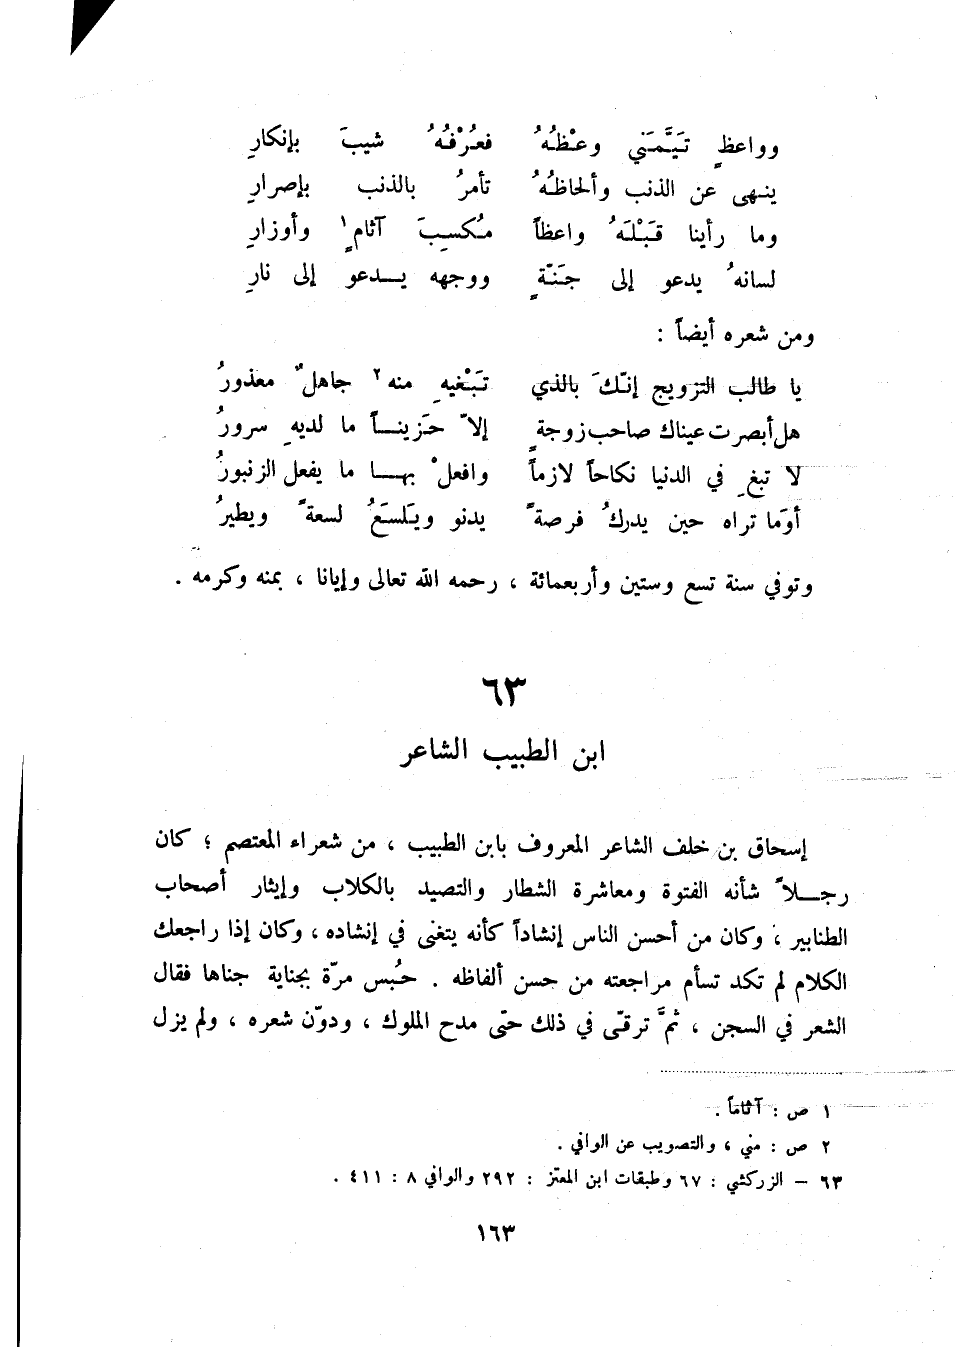 وواعظٍ تَيَّمَني وعْظُهُ فعُرْفُهُ شيبَ بإنكارِ
ينهى عن الذنب وألحاظُهُ تأمرُ بالذنب بإصرارِ
وما رأينا قَبْلَهُ واعظاً مُكسِبَ آثامٍ١ وأوزارِ
لسانهُ يدعو إلى جَنّةٍ ووجهه يدعو إلى نارِ
ومن شعره أيضاً :
يا طالب التزويج إنّكَ بالذي تَبْغيهِ منه٢ جاهلٌ معذورُ
هل أبصرت عيناك صاحب زوجةٍ إلاّ حَزيناً ما لديهِ سرورُ
لا تبغِ في الدنيا نكاحاً لازماً وافعلْ بها ما يفعل الزنبورُ
أوَما تراه حين يدركُ فرصةً يدنو ويَلسَعُ لسعةً ويطيرُ
وتوفي سنة تسع وستين وأربعمائة ، رحمه الله تعالى وإيانا ، بمنه وكرمه .
٦٣
ابن الطبيب الشاعر
إسحاق بن خلف الشاعر المعروف بابن الطبيب ، من شعراء المعتصم ؛ كان
رجلاً شأنه الفتوة ومعاشرة الشطار والتصيد بالكلاب وإيثار أصحاب
الطنابير ، وكان من أحسن الناس إنشاداً كأنه يتغنى في إنشاده ، وكان إذا راجعك
الكلام لم تكد تسأم مراجعته من حسن ألفاظه . حُبس مرّة بجناية جناها فقال
الشعر في السجن ، ثمَّ ترقّى في ذلك حتّى مدح الملوك ، ودوّن شعره ، ولم يزل
١ ص : آثاماً .
٢ ص : مني ، والتصويب عن الوافي .
٦٣ – الزركشي : ٦٧ وطبقات ابن المعتز : ٢٩٢ والوافي ٨ : ٤١١ .
١٦٣